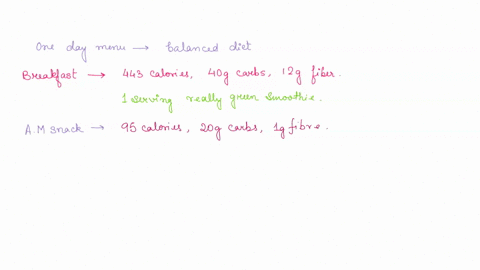 One day menu → balanced diet
Breakfast → 443 calories, 40g carbs, 12g fiber.
1 serving really green smoothie.
A.M snack → 95 calories, 20g carbs, 1g fibre.